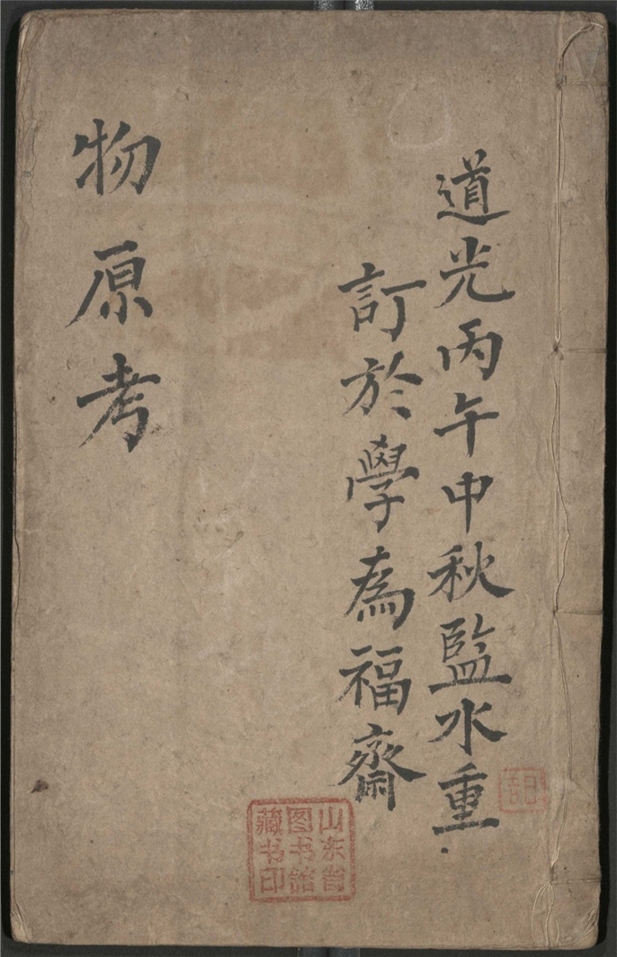 道光丙午中秋監水重
訂於學為福齋
物原考
山东省
图书馆
藏书印